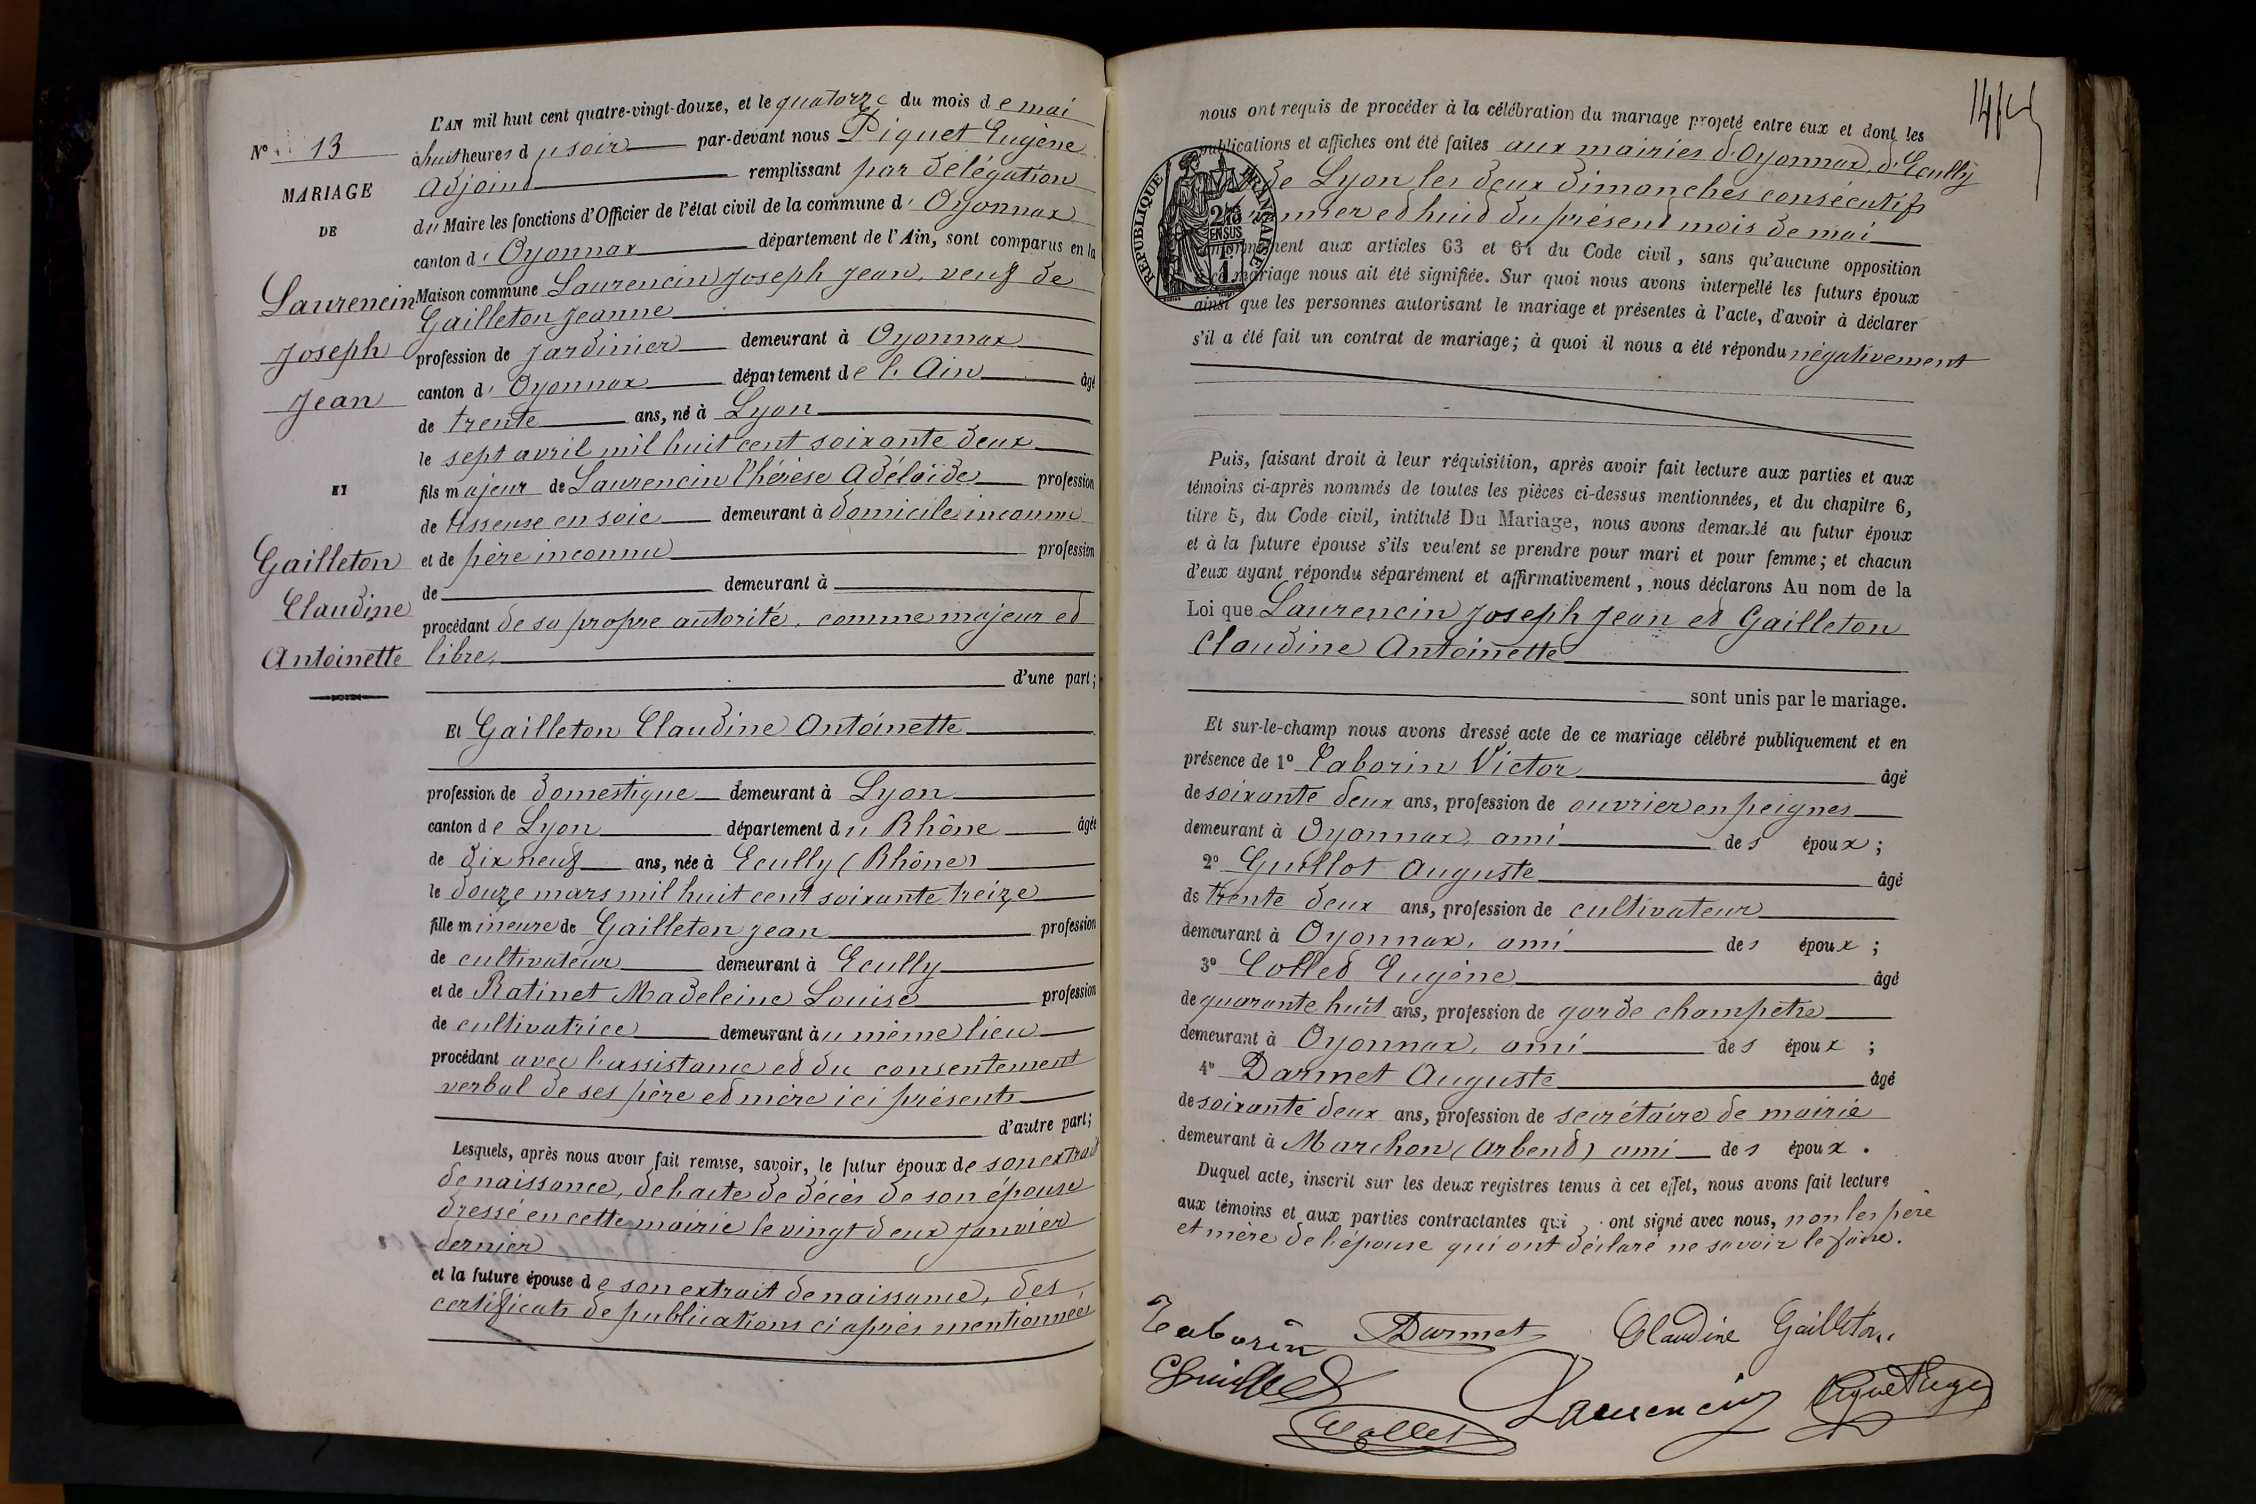 L'AN mil huit cent quatre-vingt-douze, et le quatorze du mois de mai
N° 13
à huit heures du soir par-devant nous Piquet Eugène
MARIAGE
Adjoint remplissant par délégation
DE
du Maire les fonctions d'Officier de l'état civil de la commune d' Oyonnax
canton d' Oyonnax département de l'Ain, sont comparus en la
Laurencin
Joseph
Jean
Maison commune Laurencin Joseph Jean, veuf de
Gailleton Jeanne
profession de Jardinier demeurant à Oyonnax
canton d' Oyonnax département de l'Ain âgé
de trente ans, né à Lyon
le sept avril mil huit cent soixante deux
ET
fils majeur de Laurencin Thérèse Adélaïde profession
de tisseuse en soie demeurant à domicile inconnu
Gailleton
Claudine
Antoinette
et de père inconnu profession
de demeurant à
procédant de sa propre autorité, comme majeur et
libre,
d'une part;
Et Gailleton Claudine Antoinette
profession de domestique demeurant à Lyon
canton de Lyon département du Rhône âgée
de dix neuf ans, née à Ecully (Rhône)
le douze mars mil huit cent soixante treize
fille mineure de Gailleton Jean profession
de cultivateur demeurant à Ecully
et de Ratinet Madeleine Louise profession
de cultivatrice demeurant au même lieu
procédant avec l'assistance et du consentement
verbal de ses père et mère ici présents
d'autre part;
Lesquels, après nous avoir fait remise, savoir, le futur époux de son extrait
de naissance, de l'acte de décès de son épouse
dressé en cette mairie le vingt deux janvier
dernier
et la future épouse de son extrait de naissance, des
certificats de publications ci après mentionnées
nous ont requis de procéder à la célébration du mariage projeté entre eux et dont les
publications et affiches ont été faites aux mairies d'Oyonnax, d'Ecully
de Lyon les deux dimanches consécutifs
premier et huit du présent mois de mai
conformément aux articles 63 et 64 du Code civil, sans qu'aucune opposition
mariage nous ait été signifiée. Sur quoi nous avons interpellé les futurs époux
ainsi que les personnes autorisant le mariage et présentes à l'acte, d'avoir à déclarer
s'il a été fait un contrat de mariage; à quoi il nous a été répondu négativement
RÉPUBLIQUE FRANÇAISE
Puis, faisant droit à leur réquisition, après avoir fait lecture aux parties et aux
témoins ci-après nommés de toutes les pièces ci-dessus mentionnées, et du chapitre 6,
titre 5, du Code civil, intitulé Du Mariage, nous avons demandé au futur époux
et à la future épouse s'ils veulent se prendre pour mari et pour femme; et chacun
d'eux ayant répondu séparément et affirmativement, nous déclarons Au nom de la
Loi que Laurencin Joseph Jean et Gailleton
Claudine Antoinette
sont unis par le mariage.
Et sur-le-champ nous avons dressé acte de ce mariage célébré publiquement et en
présence de 1° Taborin Victor âgé
de soixante deux ans, profession de ouvrier en peignes
demeurant à Oyonnax, ami des époux;
2° Guillot Auguste âgé
de trente deux ans, profession de cultivateur
demeurant à Oyonnax, ami des époux;
3° Collet Eugène âgé
de quarante huit ans, profession de garde champêtre
demeurant à Oyonnax, ami des époux;
4° Darmet Auguste âgé
de soixante deux ans, profession de secrétaire de mairie
demeurant à Marchon (Arbent) ami des époux.
Duquel acte, inscrit sur les deux registres tenus à cet effet, nous avons fait lecture
aux témoins et aux parties contractantes qui ont signé avec nous, non les père
et mère de l'épouse qui ont déclaré ne savoir le faire.
Taborin Darmet Claudine Gailleton
Guillot Laurencin
Collet